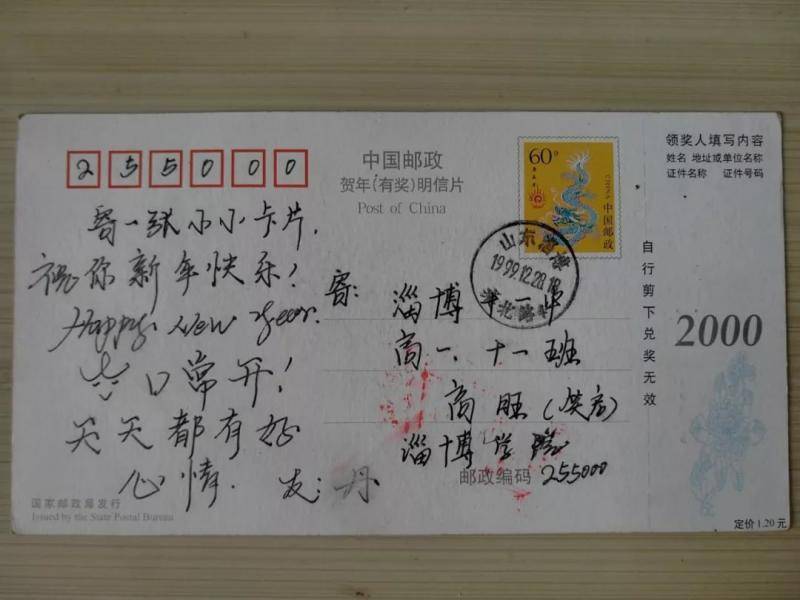 255000
中国邮政
贺年(有奖)明信片
Post of China
60分
庚辰年
CHINA
中国邮政
山东淄博
1999.12.28.18
北路
领奖人填写内容
姓名 地址或单位名称
证件名称 证件号码
自行剪下兑奖无效
2000
寄一张小小卡片,
祝你新年快乐!
Happy New Year.
口常开!
天天都有好
心情. 友:丹
寄:
淄博第十一中
高一.十一班
高旺(焕启)
淄博学院
邮政编码 255000
国家邮政局发行
Issued by the State Postal Bureau
定价1.20元